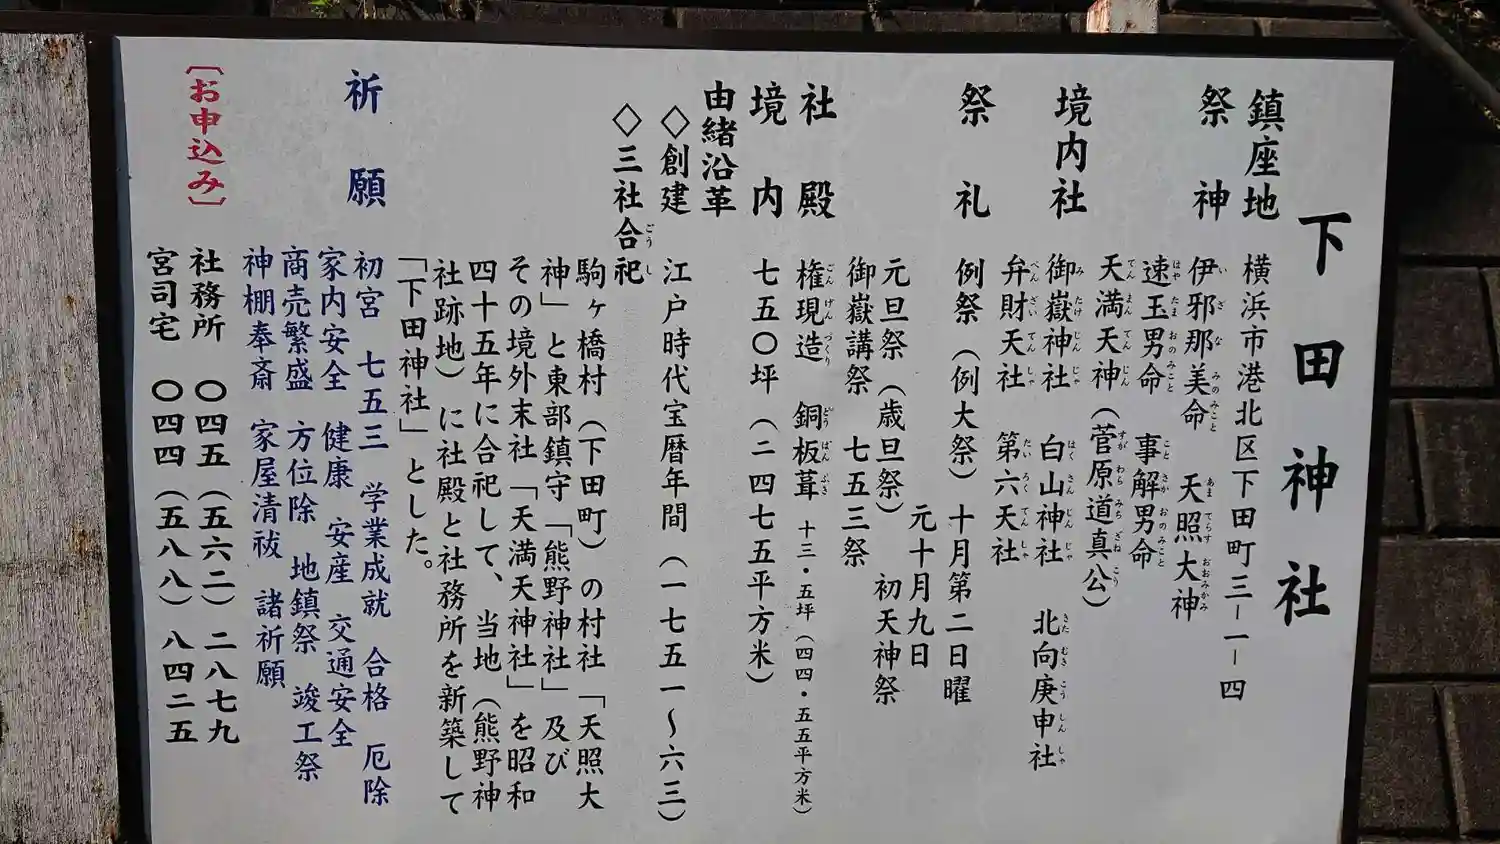 下田神社
鎮座地 横浜市港北区下田町三－一－四
祭神 伊邪那美命 天照大神
速玉男命 事解男命
天満天神（菅原道真公）
境内社 御嶽神社 白山神社 北向庚申社
弁財天社 第六天社
祭礼 例祭（例大祭）十月第二日曜
元十月九日
元旦祭（歳旦祭） 初天神祭
御嶽講祭 七五三祭
社殿 権現造 銅板葺 十三・五坪（四四・五五平方米）
境内 七五〇坪（二四七五平方米）
由緒沿革
◇創建 江戸時代宝暦年間（一七五一〜六三）
◇三社合祀
駒ヶ橋村（下田町）の村社「天照大
神」と東部鎮守「熊野神社」及び
その境外末社「天満天神社」を昭和
四十五年に合祀して、当地（熊野神
社跡地）に社殿と社務所を新築して
「下田神社」とした。
祈願 初宮 七五三 学業成就 合格 厄除
家内安全 健康 安産 交通安全
商売繁盛 方位除 地鎮祭 竣工祭
神棚奉斎 家屋清祓 諸祈願
〔お申込み〕 社務所 〇四五（五六二）二八七九
宮司宅 〇四四（五八八）八四二五